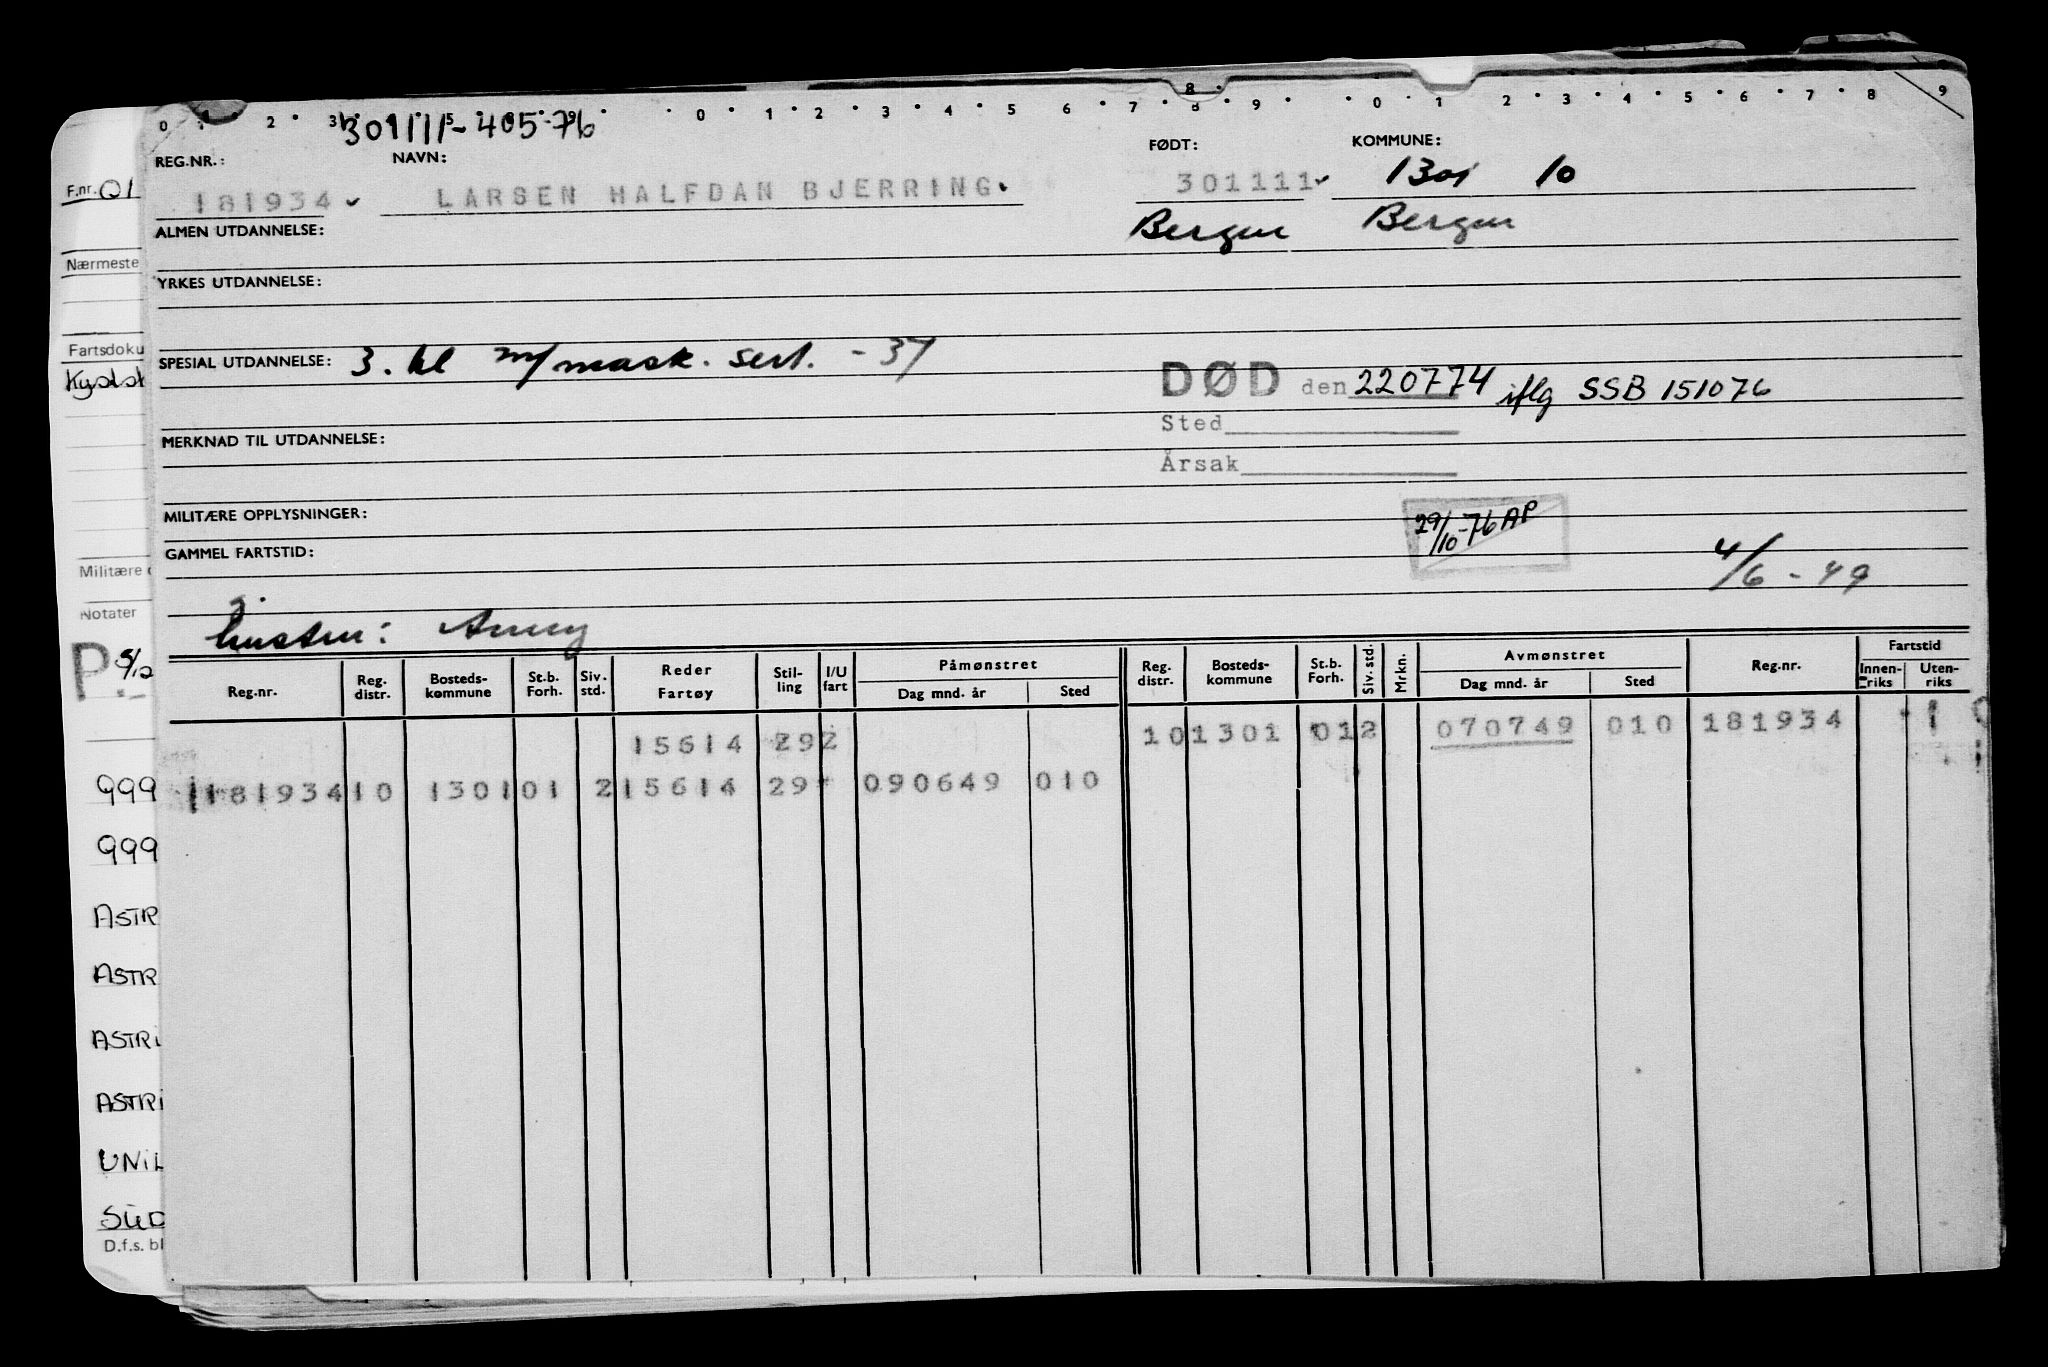 0 1 2 3 5 7 9 0 1 2 3 4 5 6 7 8 9 0 1 2 3 4 5 6 7 8 9
8
301111-405 76
REG.NR.: NAVN: FØDT: KOMMUNE:
181934 LARSEN HALFDAN BJERRING 301111 1301 10
ALMEN UTDANNELSE: Bergen Bergen
YRKES UTDANNELSE:
SPESIAL UTDANNELSE: 3. kl m/mask. sert. - 37
DØD den 220774 iflg SSB 151076
Sted
MERKNAD TIL UTDANNELSE:
Årsak
MILITÆRE OPPLYSNINGER:
29/10-76 AP
GAMMEL FARTSTID:
4/6 - 49
hustru: Anny
Reg.nr. Reg. distr. Bosteds-kommune St.b. Forh. Siv. std. Reder Fartøy Stil-ling I/U fart Påmønstret Dag mnd. år Sted Reg. distr. Bosteds-kommune St.b. Forh. Siv. std. Mrkn. Avmønstret Dag mnd. år Sted Reg.nr. Fartstid Innen-riks Uten-riks
15614 292 10 1301 01 2 070749 010 181934 1
181934 10 1301 01 2 15614 29 090649 010
F.nr. 01
Nærmeste
Fartsdoku
Kyst
Militære
Notater
P. 5/12
999
999
ASTR
ASTR
ASTRI
ASTRI
UNIL
SUD
D.f.s. bl